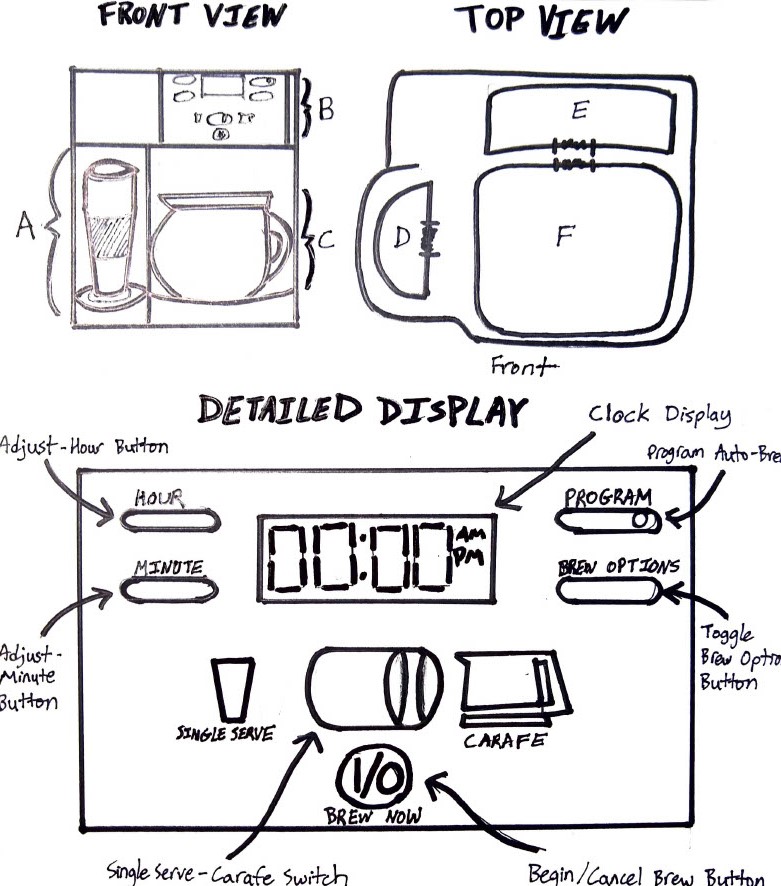 FRONT VIEW
TOP VIEW
A
B
C
D
E
F
Front
DETAILED DISPLAY
Clock Display
Adjust-Hour Button
Program Auto-Bre
HOUR
PROGRAM
00:00 AM
PM
MINUTE
BREW OPTIONS
Adjust-
Minute
Button
Toggle
Brew Optio
Button
SINGLE SERVE
CARAFE
I/O
BREW NOW
Single Serve-Carafe Switch
Begin/Cancel Brew Button